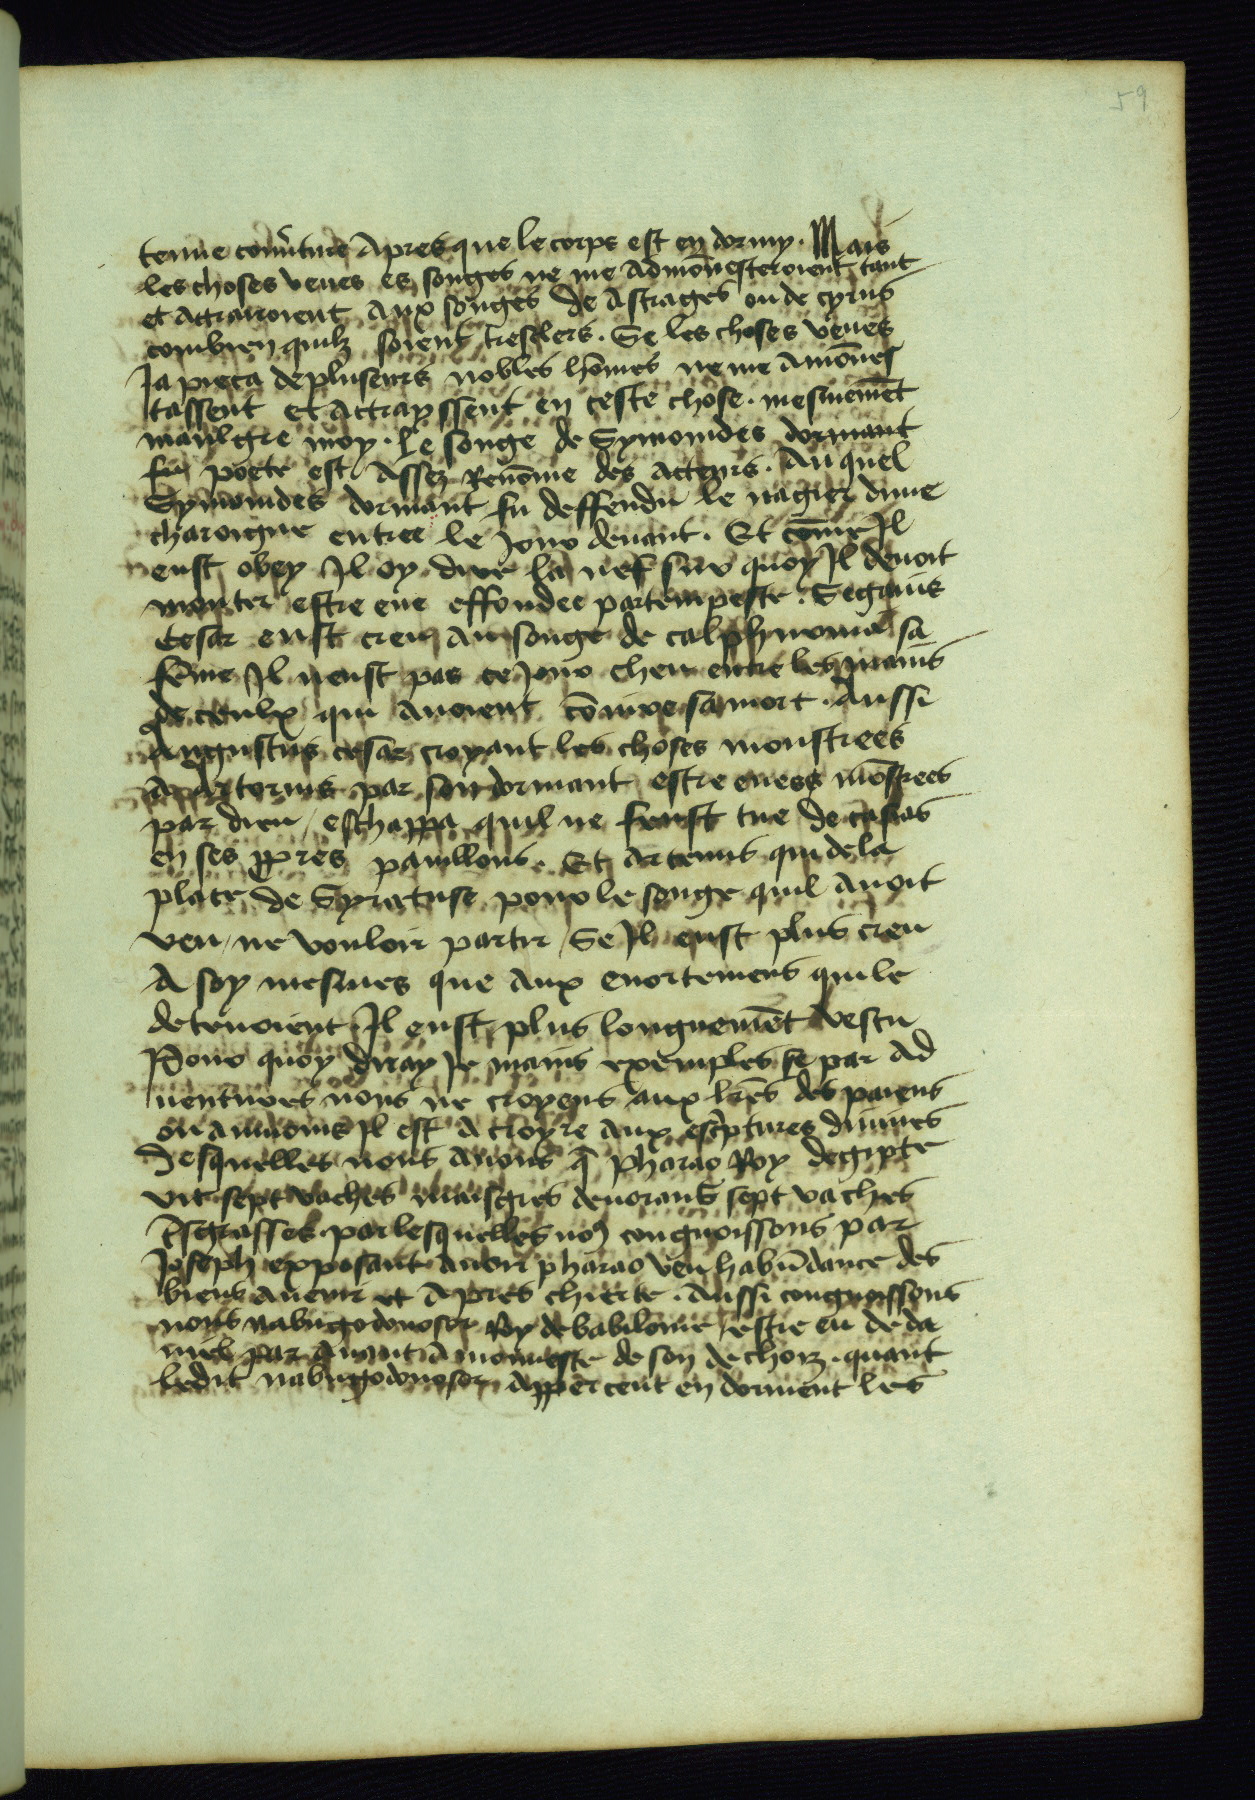 59
tenue couv̉ture Apres que le corps est en dormy. Mais
les choses veues es songes ne me admōnesteroient tant
et attrairoient aux songes de Astrages ou de cyrus
combien quilz soient tresclers. Se les choses veues
Ja pieca de pluseurs nobles hōmes ne me amōnes
tassent et attrayssent en ceste chose. mesmemēt
maulgre moy. Le songe de Symonides dormant
poete est Assez Renōme des acteurs. Au quel
Symonides dormant fu deffendu le nagier dune
charoigne entree le Jour deuant. Et cōme Il
eust obey Il oy dire la nef sur quoy Il deuoit
monter estre eue effondee par tempeste. Se gaius
Cesar eust creu au songe de calphurnia sa
feme Il neust pas ce Jour cheu entre les mains
de ceulx qui auoient cōiure sa mort. Aussi
Augustus cesar croyant les choses monstrees
a Artorius par son dormant estre euees mōstrees
par dieu / eschappa quil ne feust tue de cassas
en ses ꝓpres pauillons. Et Artemis qui de la
place de Syracuse pour le songe quil auoit
veu / ne vouloir partir / Se Il eust plus creu
A soy mesmes que aux enortemens qui le
detenoient. Il eust plus longuemēt vescu
Pour quoy diray Je mains exemples se par ad
uentures nous ne croyens aux lr̄es des paiens
ou aumoins Il est a croyre aux esc̉ptures diuines
Desquelles nous auons q̄ pharao Roy degipte
vit sept vaches maisgres deuorans sept vaches
t̄sgrasses. par lesquelles no9 congnoissons par
Joseph exposant auoir pharao veu habūdance des
biens auenir et apres chierte. Aussi congnoissons
nous nabugodonosor Roy de babilonie / estre eu de da
niel par auant amonneste de son dechoiz. quant
ledit nabugodonosor apperceut en dormēt les